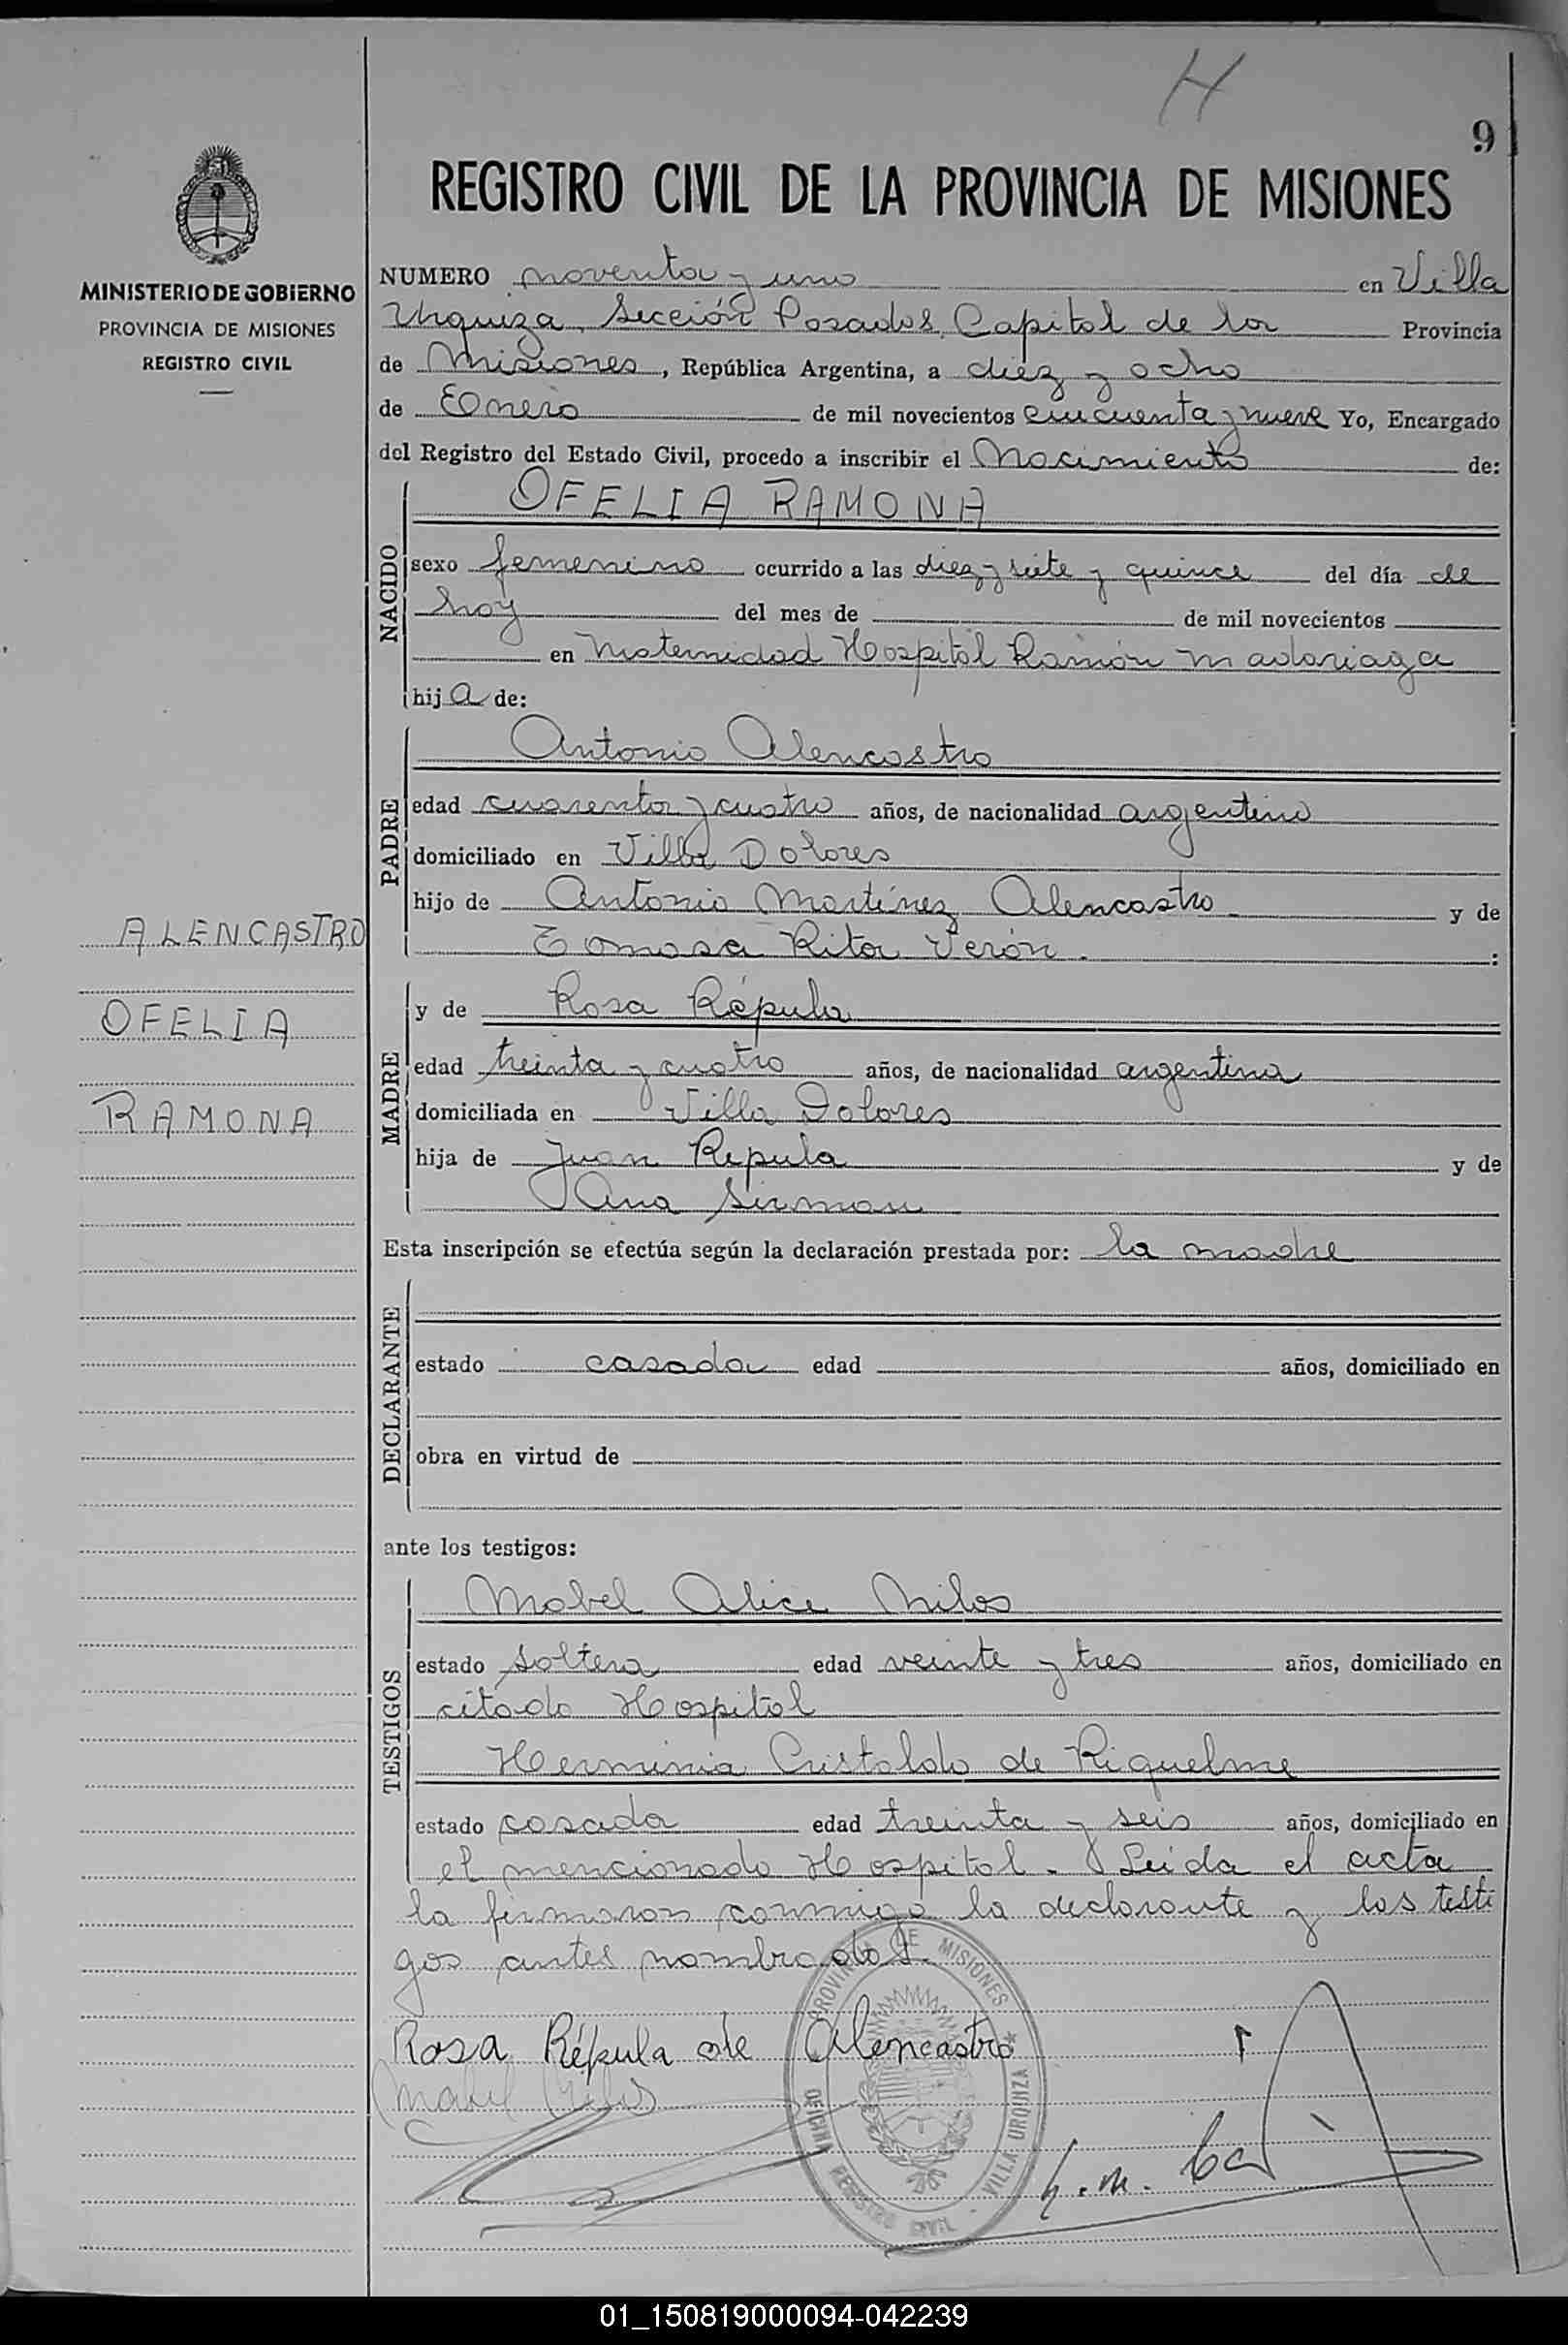 H
9
REGISTRO CIVIL DE LA PROVINCIA DE MISIONES
MINISTERIO DE GOBIERNO
PROVINCIA DE MISIONES
REGISTRO CIVIL
NUMERO noventa y uno en Villa
Urquiza, Sección Posadas, Capital de la Provincia
de Misiones, República Argentina, a diez y ocho
de Enero de mil novecientos cincuenta y nueve Yo, Encargado
del Registro del Estado Civil, procedo a inscribir el Nacimiento de:
NACIDO
OFELIA RAMONA
sexo femenino ocurrido a las diez y siete y quince del día de
hoy del mes de de mil novecientos
en Maternidad Hospital Ramón Madariaga
hija de:
PADRE
Antonio Alencastro
edad cuarenta y cuatro años, de nacionalidad argentino
domiciliado en Villa Dolores
hijo de Antonio Martínez Alencastro y de
Tomasa Rita Verón.:
ALENCASTRO
OFELIA
RAMONA
MADRE
y de Rosa Répula
edad treinta y cuatro años, de nacionalidad argentina
domiciliada en Villa Dolores
hija de Juan Repula y de
Ana
Esta inscripción se efectúa según la declaración prestada por: la madre
DECLARANTE
estado casada edad años, domiciliado en
obra en virtud de
ante los testigos:
TESTIGOS
Mabel Alice Milos
estado soltera edad veinte y tres años, domiciliado en
citado Hospital
Herminia Cristaldo de Riquelme
estado casada edad treinta y seis años, domiciliado en
el mencionado Hospital. Leída el acta
la firmaron conmigo la declarante y los testi
gos antes nombrados.
Rosa Répula de Alencastro
PROVINCIA DE MISIONES
OFICINA REGISTRO CIVIL - VILLA URQUIZA
01_150819000094-042239